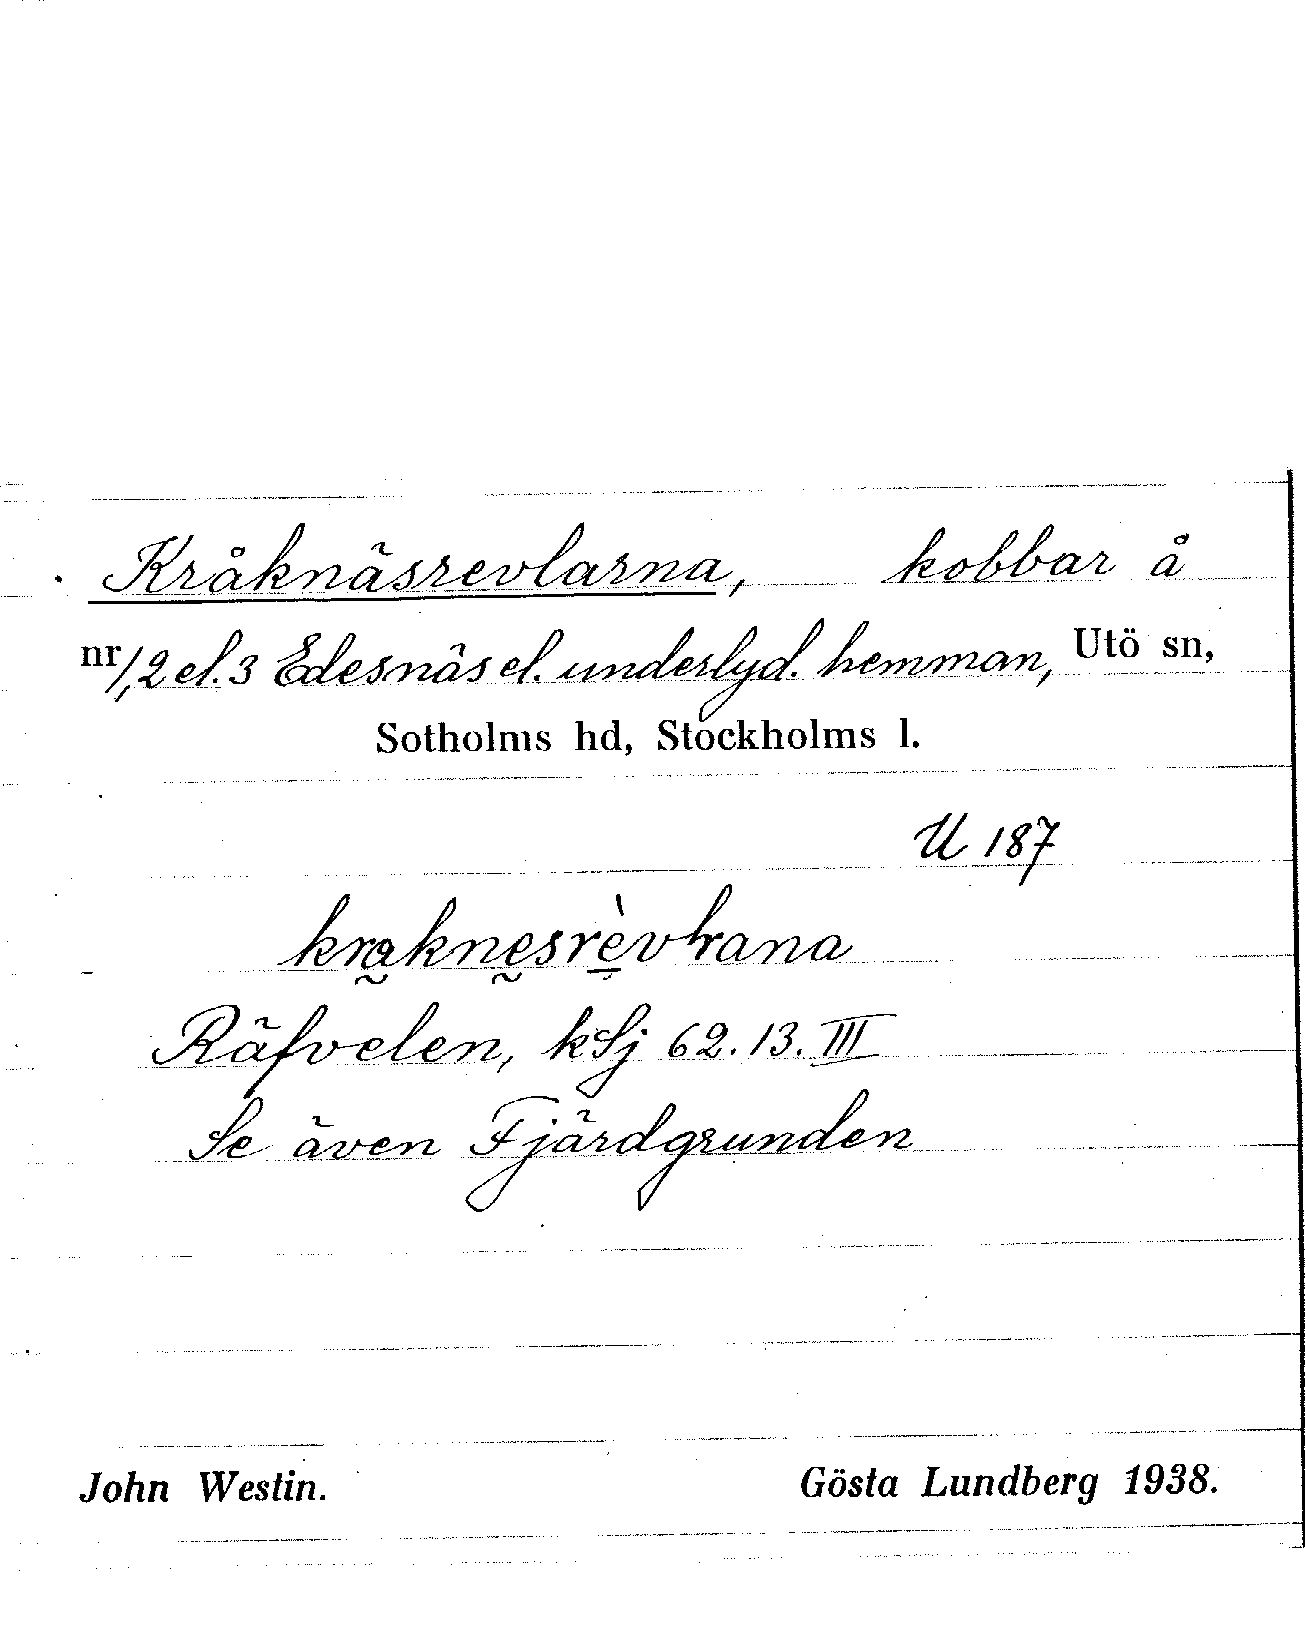 Kråknäsrevlarna, kobbar å
nr 1, 2 el. 3 Edesnäs el. underlyd. hemman, Utö sn,
Sotholms hd, Stockholms l.
U 187
Räfvelen, kSj 62.13.III
Se även Fjärdgrunden
John Westin. Gösta Lundberg 1938.